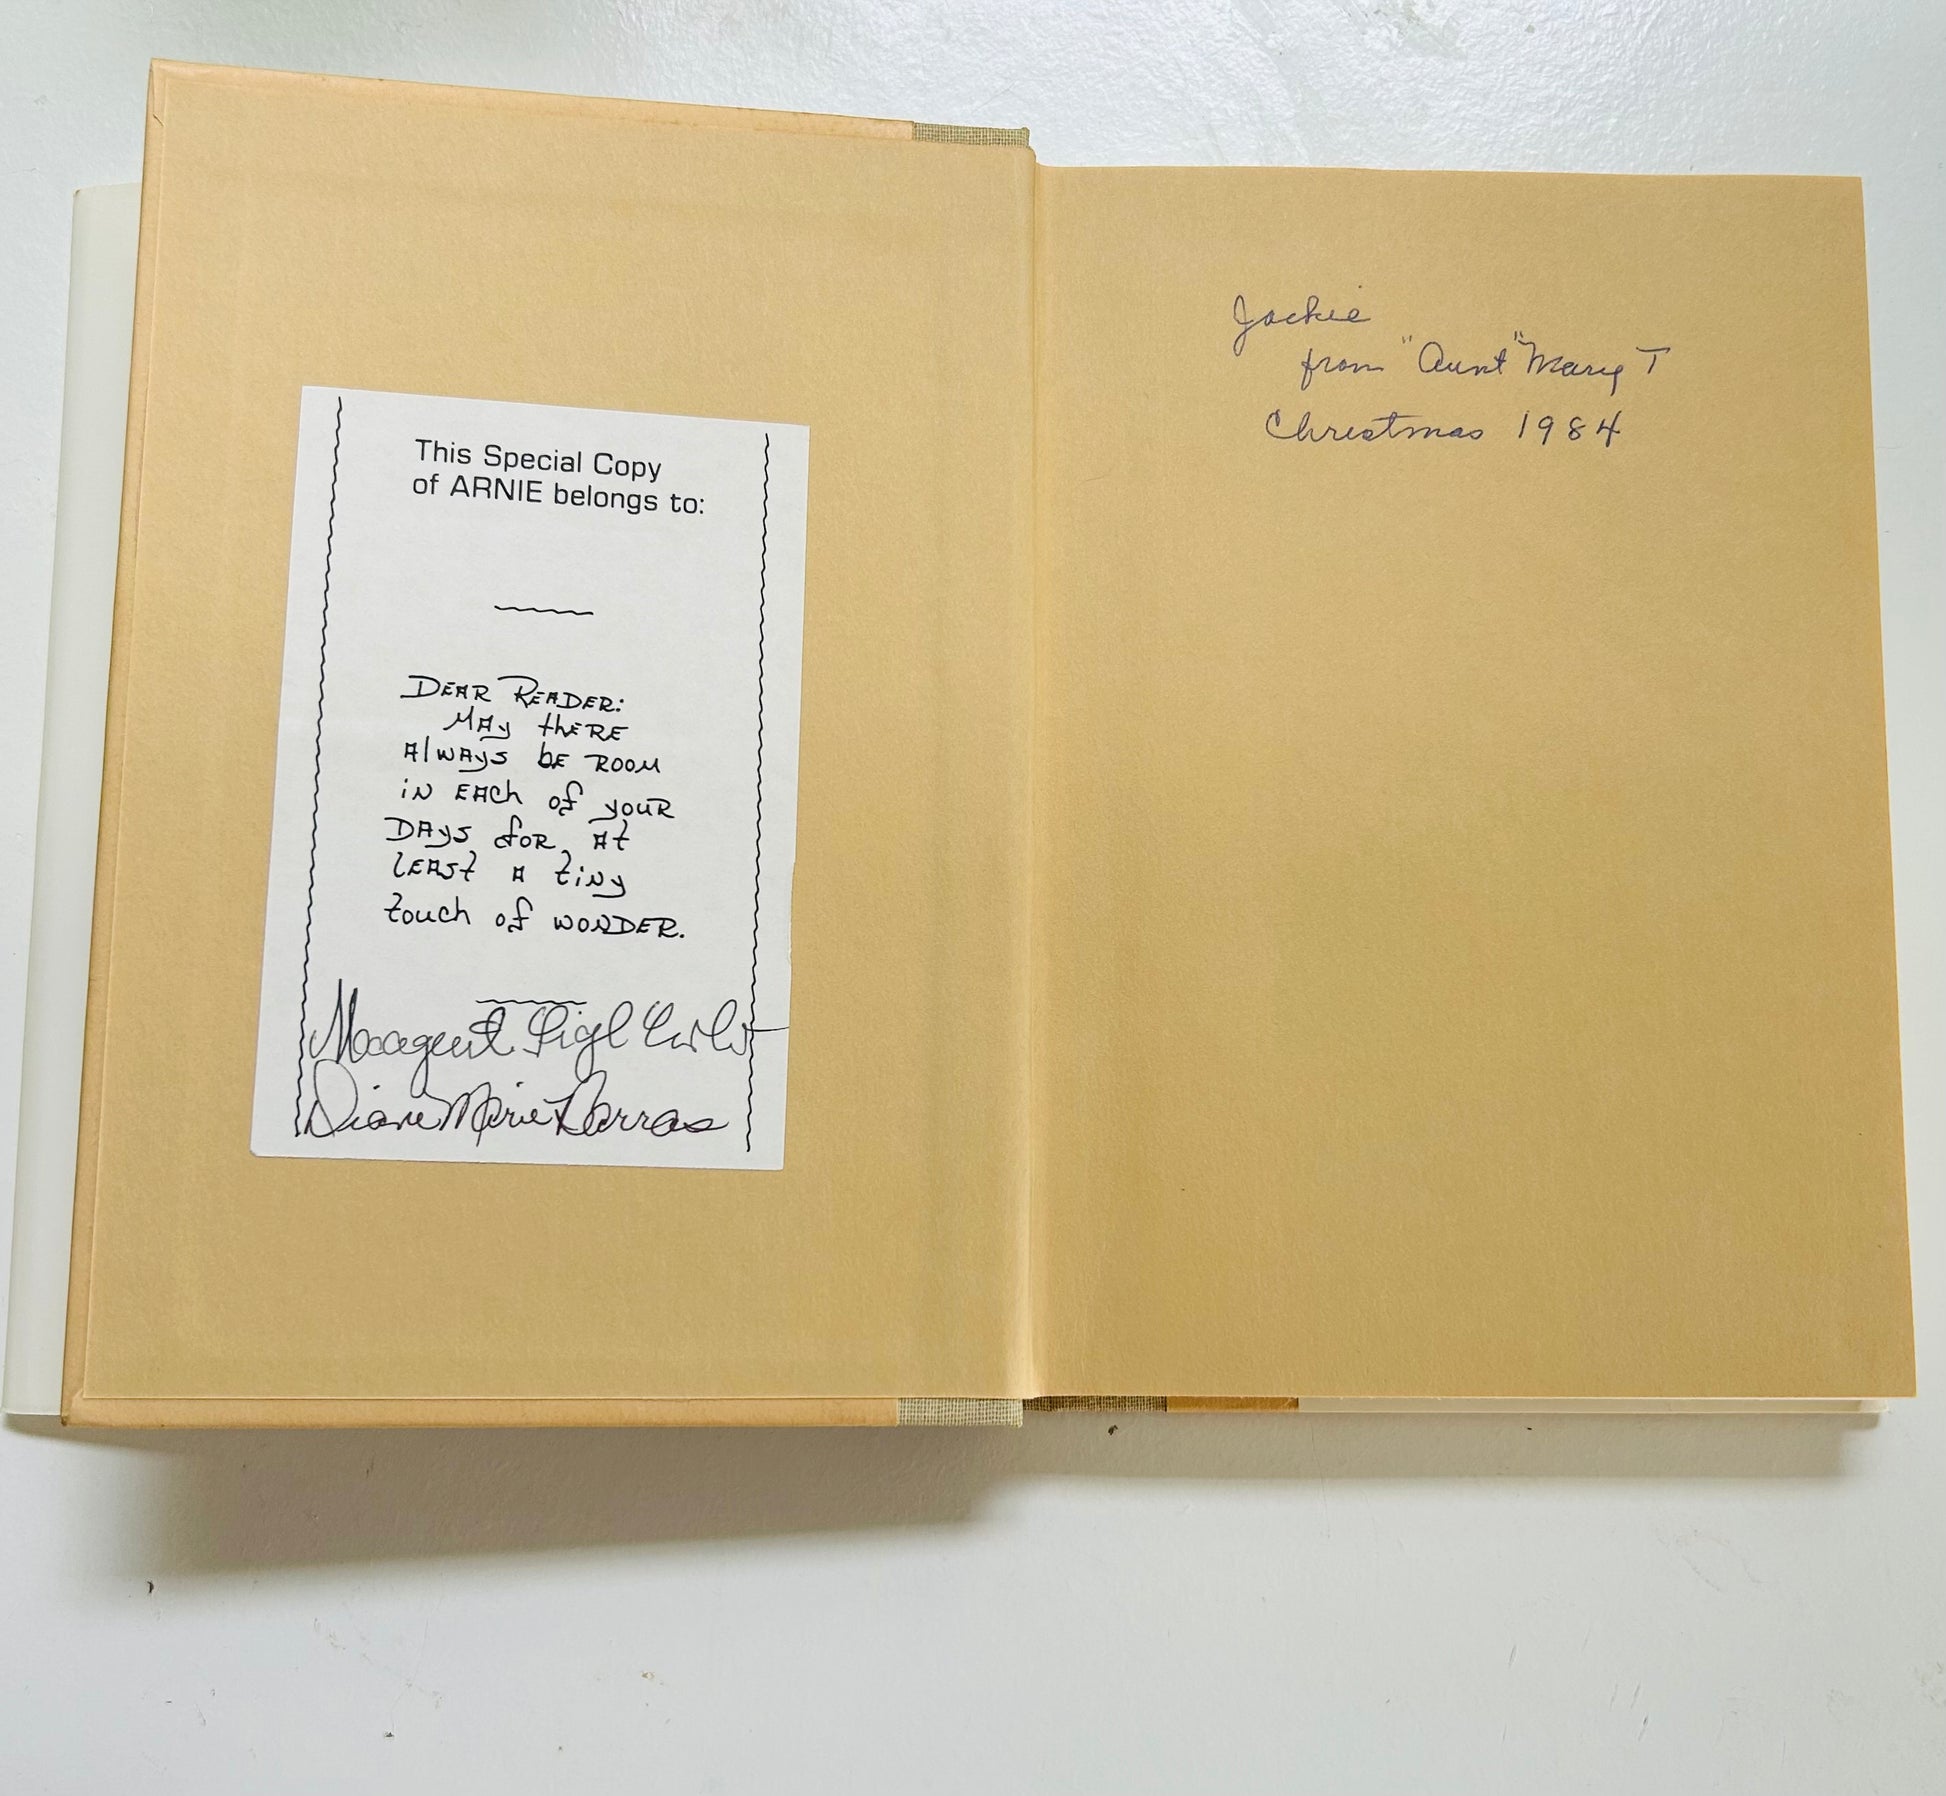 This Special Copy
of ARNIE belongs to:
DEAR READER:
MAy thERE
AlwAys bE ROOM
iN EACh of youR
DAys foR At
lEASt A tiNy
touch of WONDER.
Diane Marie Barras
Jackie
from "Aunt" Mary T
Christmas 1984